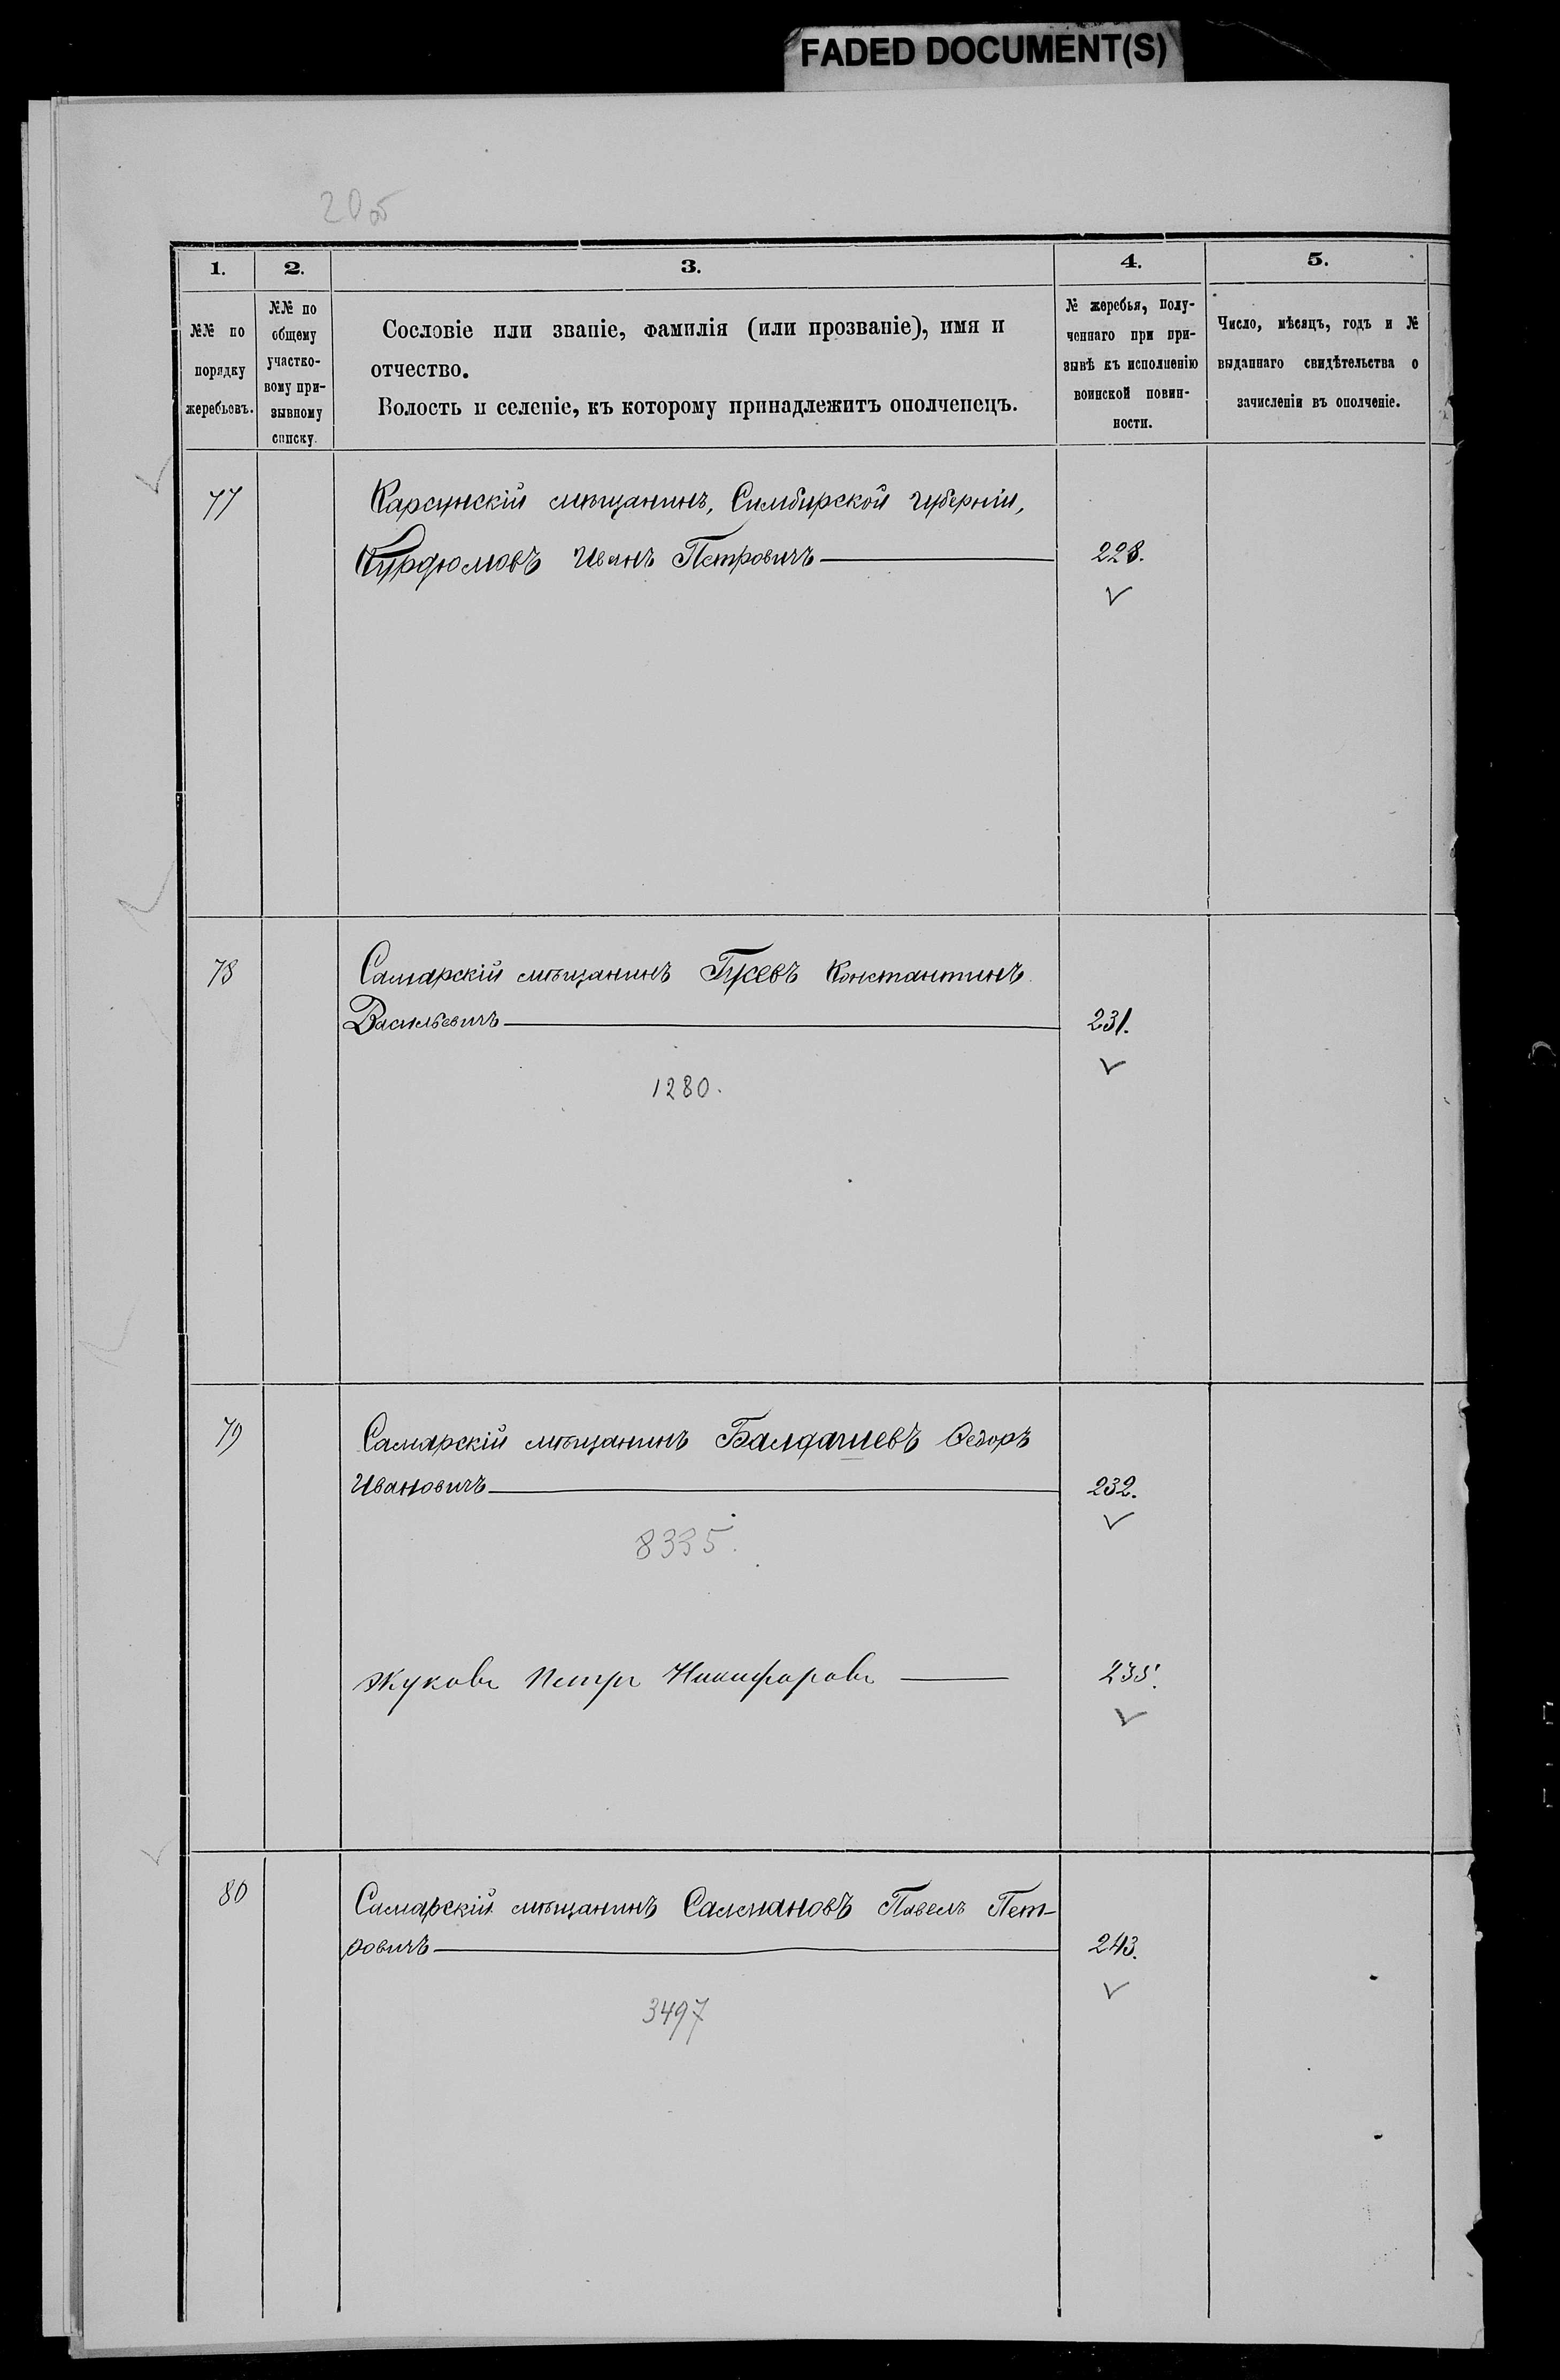 FADED DOCUMENT(S)
20 об
1.
2.
3.
4.
5.
№№ по порядку жеребьевъ.
№№ по общему участко-
вому при-
зывному списку.
Сословіе или званіе, фамилія (или прозваніе), имя и
отчество.
Волость и селеніе, къ которому принадлежитъ ополченецъ.
№ жеребья, полу-
ченнаго при при-
зывѣ къ исполненію
воинской повин-
ности.
Число, мѣсяцъ, годъ и №
выданнаго свидѣтельства о
зачисленіи въ ополченіе.
77
Карсунскій мѣщанинъ, Симбирской губерніи,
Курдюмовъ Иванъ Петровичъ
228.
78
Самарскій мѣщанинъ Гусевъ Константинъ
Васильевичъ
231.
1280.
79
Самарскій мѣщанинъ Балдачиевъ Ѳедоръ
Ивановичъ
232.
8335.
Жуковъ Петръ Никифоровъ
235.
80
Самарскій мѣщанинъ Салмановъ Павелъ Пет-
ровичъ
243.
3497